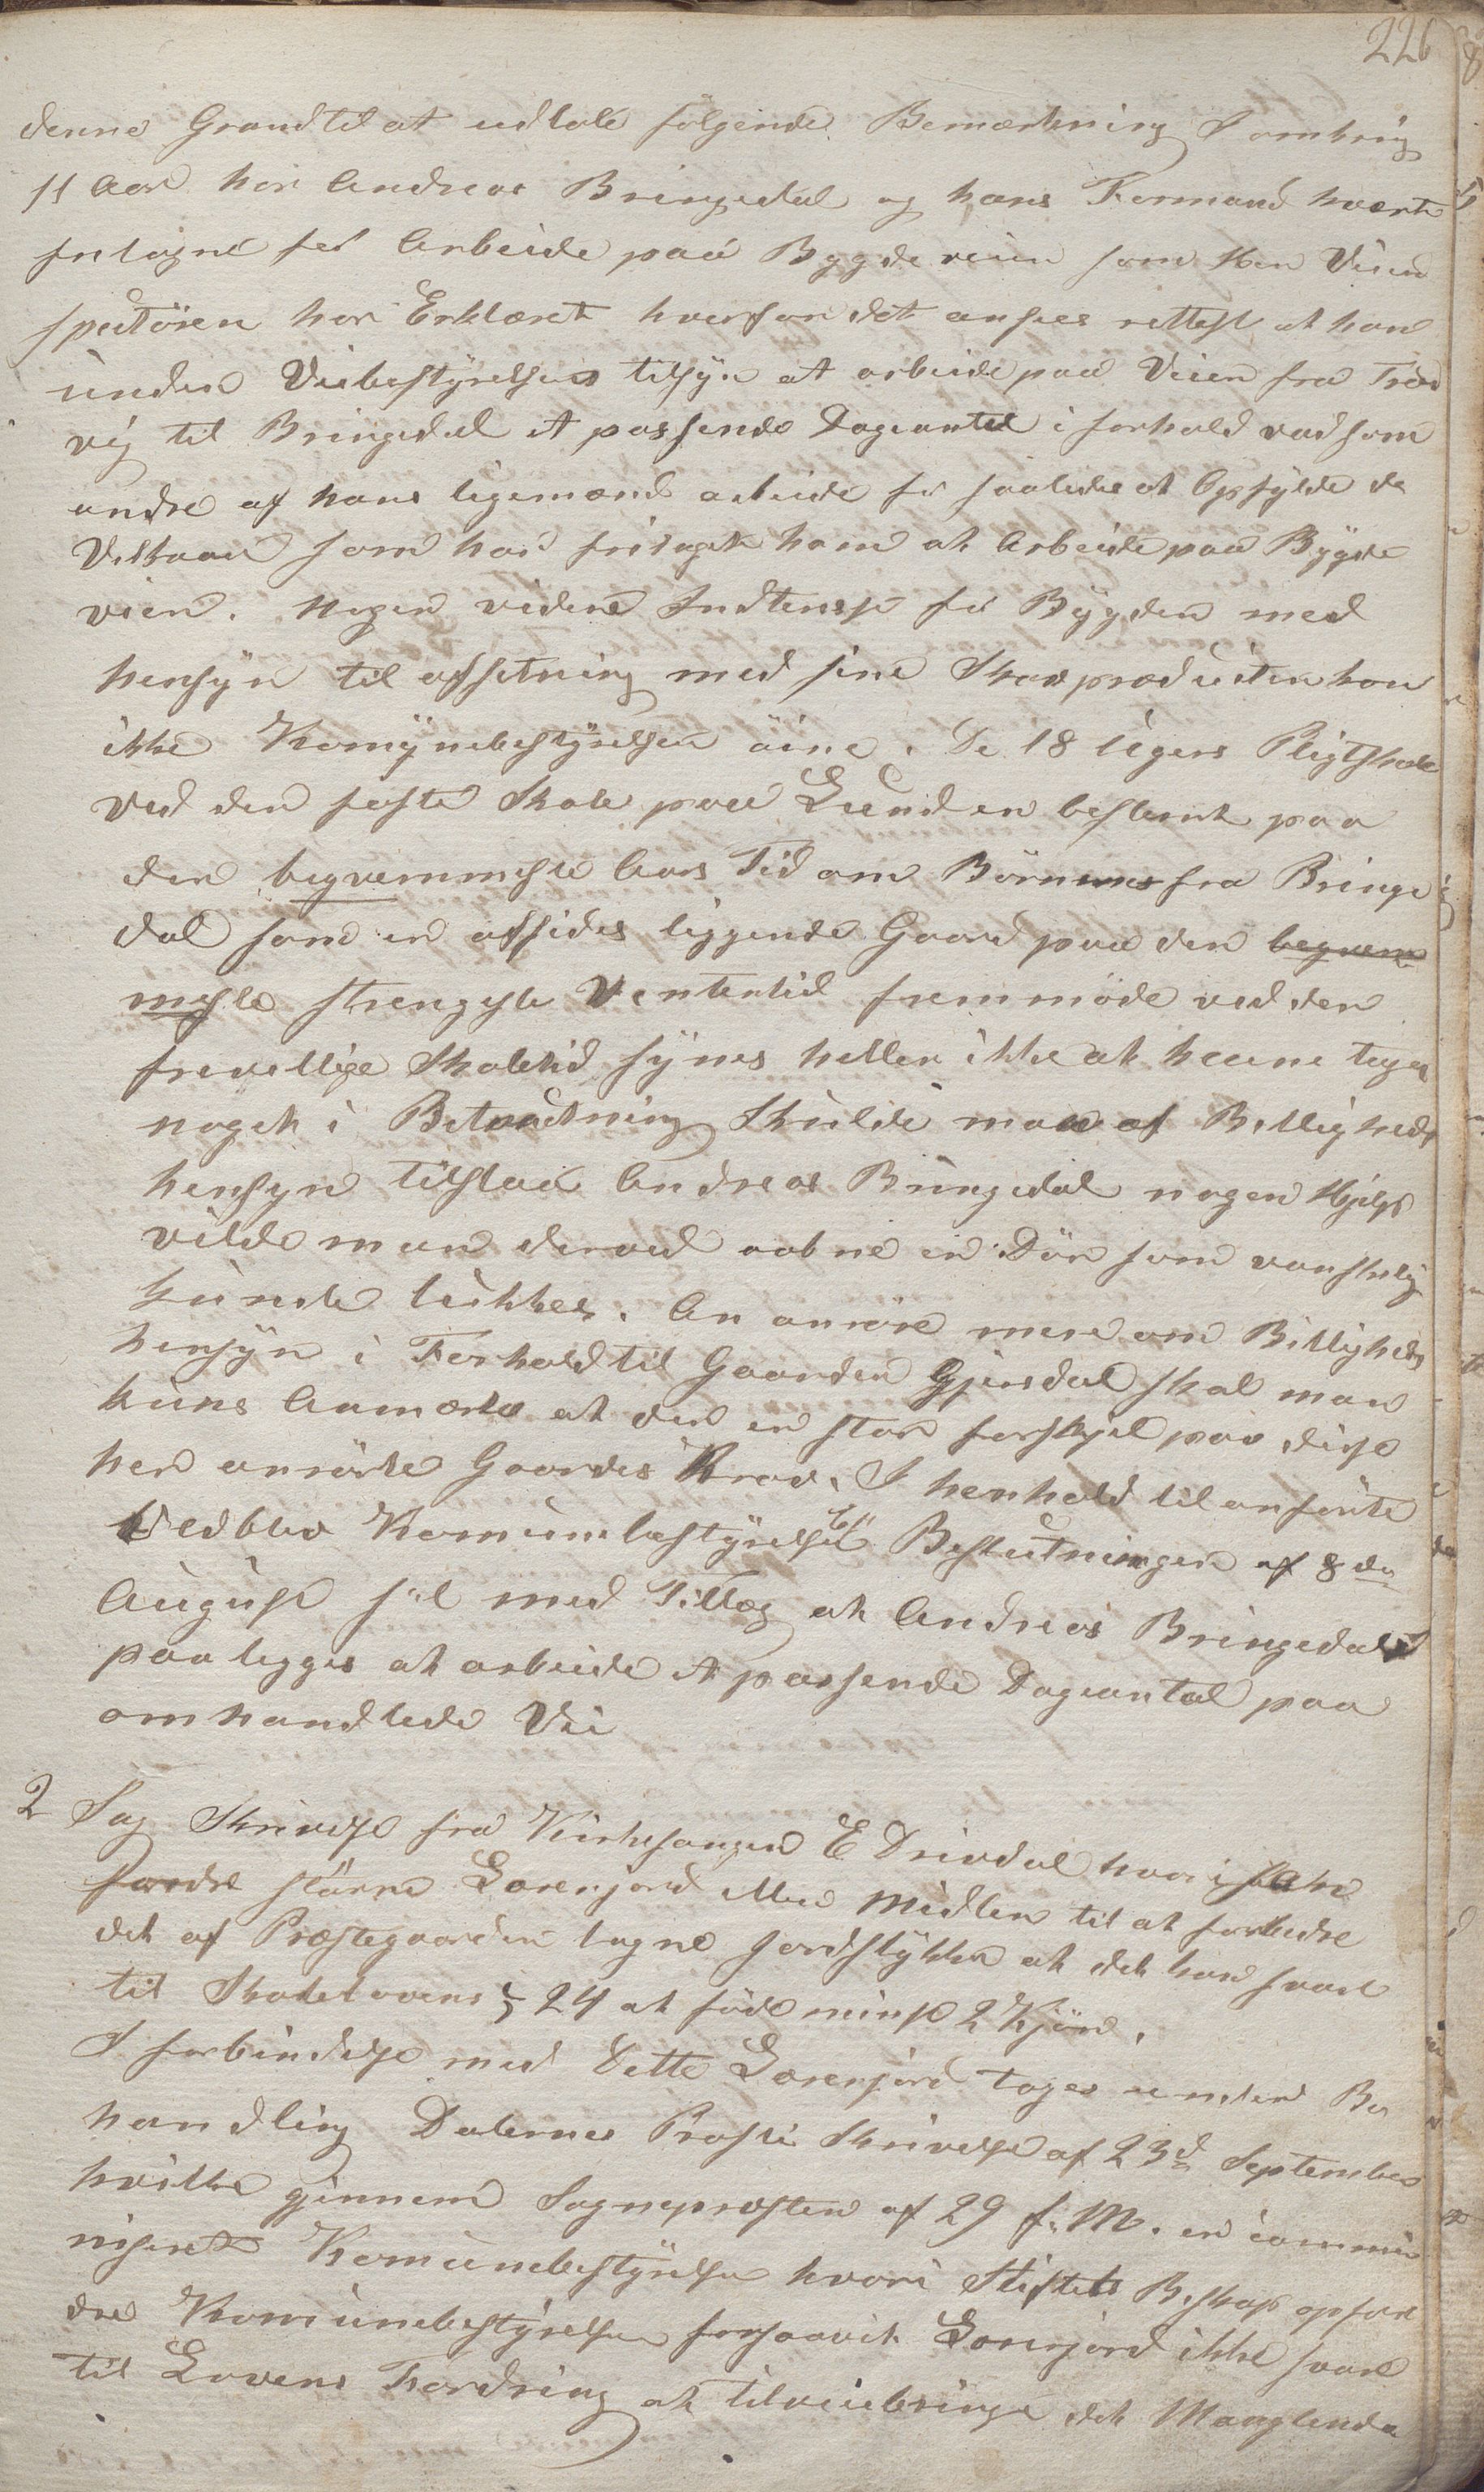 226
denne Grund til at udtale følgende Bemærkning I omkring
11 Aar har Andreas Bringedal og hans Formand hværet
fritagne for Arbeide paa Bygdeveien som Her Veiin
spectøren har Erklæret hverfor det ansees rettest at han
under Veibestyrelsens tilsyn at arbeide paa Veien fra Træd
vig til Bringedal et passende Dageantal i forhold vad som
andre af hans ligemænd arbeide for saaledes at Opfylde de
Vilkaar som har fritaget ham at Arbeide paa Bygde
veien. Nogen videre Indteresse for Bygden med
hensyn til afsetning med sine Skovproducter kan
ikke Komunebestyrelsen øine. De 18 Ugers Pligtskole
ved den faste Skole paa Lund er bestemt paa
den beqvemmeste Aars Tid om Børnene fra Bringe
dal som en afsides liggende Gaard paa den beqvem
meste strengeste Ventertid fremmøde ved den
frivillige Skoletid synes heller ikke at kunne tages
noget i Betraktning Skulde man af Billigheds
hensyn tilstaa Andreas Bringedal nogen Hjelp
vilde man derved aabne en Dør som vanskelig
kunde lukkes. An anøre mere om Billigheds
hensyn i Forhold til Gaarden Gjersdal skal man
kuns Anmærke at der er stor forskjel paa disse
her anørte Gaardes Krav. I henhold til anførte
Vedblev Komunebestyrelsen Beslutningen af 8de
August s.l med Tillæg at Andreas Bringedal
paalegges at arbeide et passende Dageantal paa
omhandlede Vei
2 Sag Skrivelse fra Kirkesanger E Drivdal hvori han
fordre større Lærerjord eller Midler til at forbedre
det af Præstegaarden tagne Jordstykke at det kan svare
til Skolelovens § 24 at føde minst 2 Kjør.
I forbindelse med Dette Lærerjord tages under Be
handling Dalernes Prosti Skrivelse af 23d September
hvilke gjennem Sognepræsten af 29 f. M. er commu
niseret Komunebestyrelsen hvori Stiftets Biskop opfor
dre Komunebestyrelsen forsaavit Lærerjord ikke svare
til Lovens Fordring at tilveiebringe det Manglende